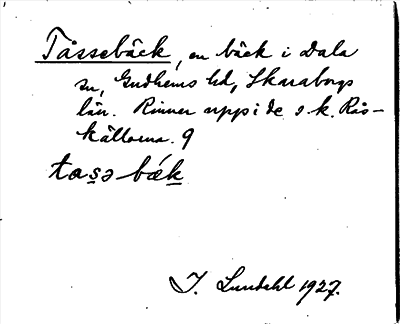 Tåssebäck, en bäck i Dala
sn, Gudhems hd, Skaraborgs
län. Rinner upp i de s.k. Rås-
källorna. 9
tasə bæk
I. Lundahl 1927.